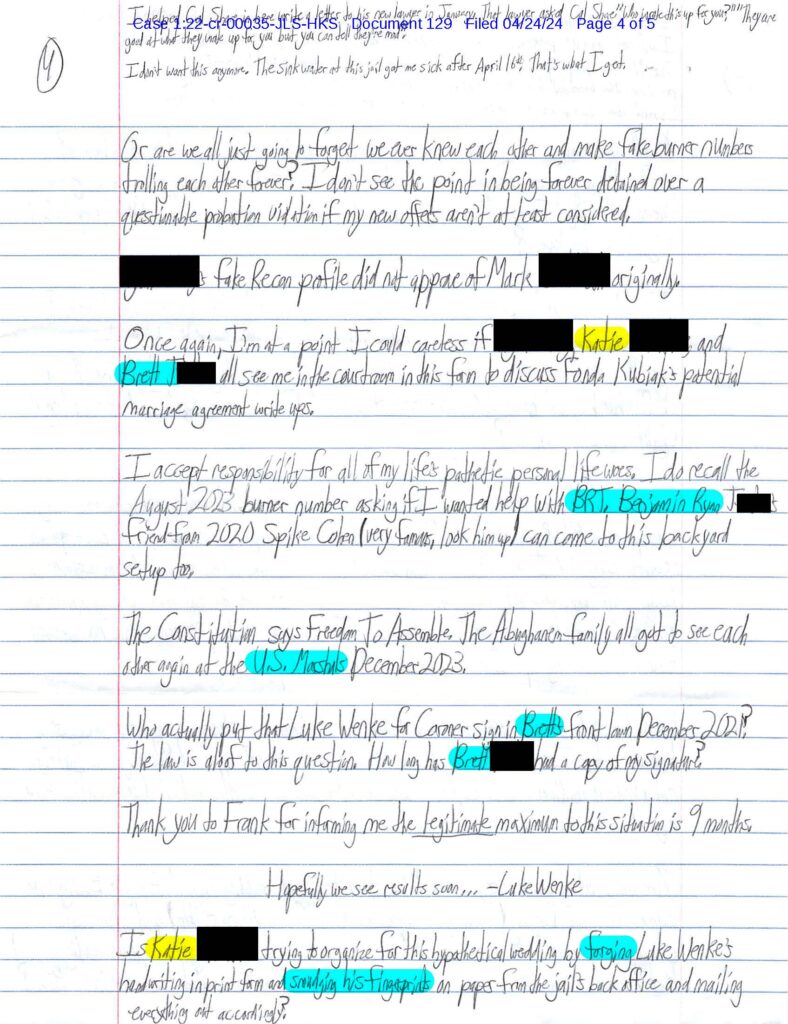 I helped Cal Shaw in here write a letter to his new lawyer in January. That lawyer asked Cal Shaw "Who wrote this up for you?" "They are
Case 1:22-cr-00035-JLS-HKS Document 129 Filed 04/24/24 Page 4 of 5
good at what they make up for you but you can tell they're mad."
4
I don't want this anymore. The sink water at this jail got me sick after April 16th. That's what I get.
Or are we all just going to forget we ever knew each other and make fake burner numbers
trolling each other forever? I don't see the point in being forever detained over a
questionable probation violation if my new offers aren't at least considered.
s fake Recon profile did not approve of Mark originally.
Once again, I'm at a point I could careless if Katie and
Brett J all see me in the courtroom in this form to discuss Fonda Kubiak's potential
marriage agreement write ups.
I accept responsibility for all of my life's pathetic personal life woes. I do recall the
August 2023 burner number asking if I wanted help with BRT. Benjamin Ryan T s
friend from 2020 Spike Cohen (very famous, look him up) can come to this backyard
setup too.
The Constitution says Freedom To Assemble. The Abughanem family all got to see each
other again at the U.S. Marshals December 2023.
Who actually put that Luke Wenke for Coroner sign in Brett's front lawn December 2021?
The law is aloof to this question. How long has Brett had a copy of my signature?
Thank you to Frank for informing me the legitimate maximum to this situation is 9 months.
Hopefully we see results soon... -Luke Wenke
Is Katie trying to organize for this hypothetical wedding by forging Luke Wenke's
handwriting in print form and smudging his fingerprints on paper from the jail's back office and mailing
everything out accordingly?